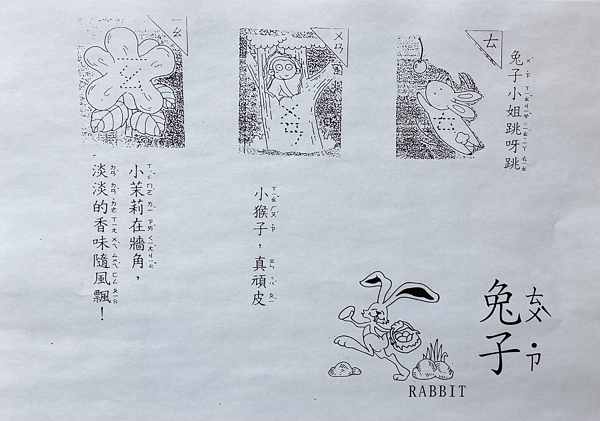 ㄊ
兔子小姐跳呀跳
ㄨㄢ
小猴子，真頑皮
ㄠ
小茉莉在牆角，
淡淡的香味隨風飄！
兔子
ㄊㄨˋ ˙ㄗ
RABBIT